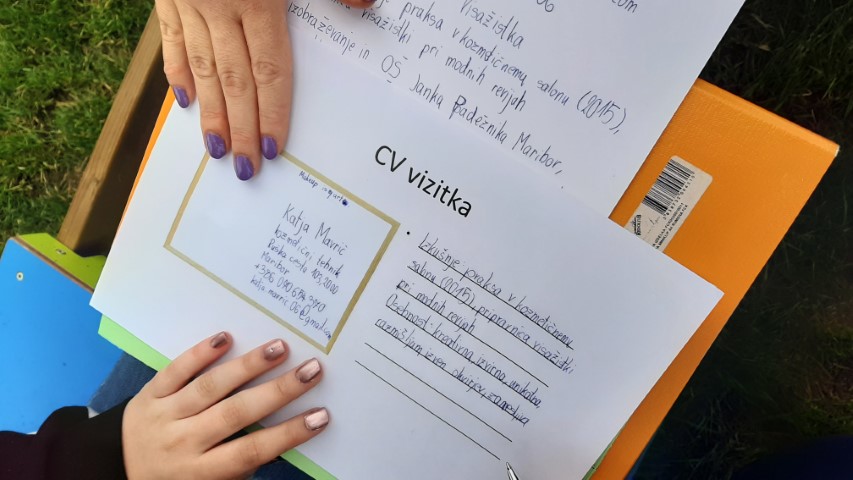 com
visažistka
praksa v kozmetičnemu salonu (2015),
visažistki pri modnih revijah
izobraževanje in OŠ Janka Padežnika Maribor,
CV vizitka
Makeup
Katja Mavrič
kozmetični tehnik
Ruška cesta 105, 2000
Maribor
+386 070 684 3
katja.mavric.06@gmail.com
• Izkušnje: praksa v kozmetičnemu
salonu (2015), pripravnica visažistki
pri modnih revijah
Osebnost: kreativna, izvirna, unikatna,
razmišljam izven okvirjev,